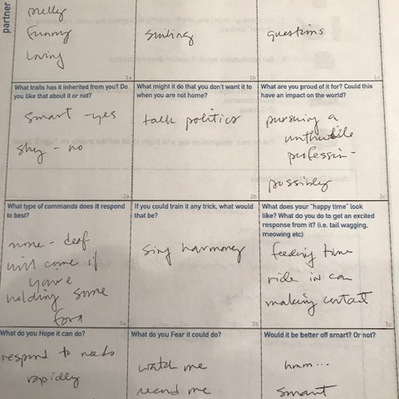 partner
pretty
funny
loving
smiling
questions
1a
1b
1c
What traits has it inherited from you? Do
you like that about it or not?
smart - yes
shy - no
2a
What might it do that you don't want it to
when you are not home?
talk politics
2b
What are you proud of it for? Could this
have an impact on the world?
pursuing a
profession -
possibly
2c
What type of commands does it respond
to best?
none - deaf
will come if
you're
holding some
3a
If you could train it any trick, what would
that be?
sing harmony
3b
What does your "happy time" look
like? What do you do to get an excited
response from it? (i.e. tail wagging,
meowing etc)
feeding time
ride in car
making contact
3c
What do you Hope it can do?
respond to needs
rapidly
What do you Fear it could do?
watch me
record me
Would it be better off smart? Or not?
hmm...
smart